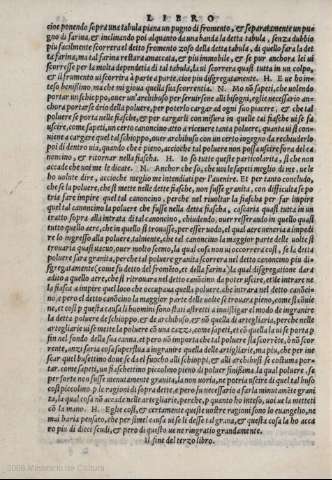 L I B R O
cioe ponendo sopra una tabula piana un pugno di formento, & separatamente un pu=
gno di farina, & inclinando poi alquanto da una banda la detta tabula, senza dubbio
piu facilmente scorrera el detto fromento zoso della detta tabula, di quello fara la det
ta farina, ma tal farina restara amaccata, & piu immobile, & se pur anchora lei ui
scorresse per la molta dependetia di tal tabula, la ui scorrera quasi tutta in un colpo,
& il frumento ui scorrira à parte a parte, cioe piu disgregatamente. H. E ue ho in=
teso benissimo, ma che mi gioua questa sua scorrentia. N. Mo nõ sapeti, che uolendo
portar un schioppo, ouer un'archibuso per seruirsene alli bisogni, eglie necessario an=
chora portarse drio della poluere, per poterlo cargar ad ogni suo piacere, & che tal
poluere se porta nelle fiasche, & per cargarli con misura in quelle tai fiasche ui se fa
uscire, come sapeti, un certo canoncino atto a riceuere tanta poluere, quanta ui si con=
uiene a cargare quel tal schioppo, ouer archibuso con un certo ingegno da rechiuderlo
poi di dentro uia, quando che è pieno, accioche tal poluere non possa uscire fora del ca=
noncino, & ritornar nella fiascha. H. Io so tutte queste particolarita, si che non
accade che uoi me le dicate. N. Anchor che so, che uoi le sapeti meglio di me, uele
ho uolute dire, accioche meglio me intendiati per l'auenire. Et per tanto concludo,
che se la poluere, che si mette nelle dette fiasche, non fusse granita, con difficulta se po
tria fare impire quel tal canoncino, perche nel riuoltar la fiascha per far impire
quel tal canoncino la poluere che fusse nella detta fiascha, costaria quasi tutta in un
tratto sopra alla intrata di tal canoncino, chiudendo, ouer restserrando in quello quasi
tutto quello aere, che in quello si trouasse, per esser uodo, el qual aere ueneria a impedi
re lo ingresso alla poluere, talmente, che tal canoncino la maggior parte delle uolte si
trouaria quasi uacuo, ouer molto scemo, la qual cosa non ui occorrera cosi, se la detta
poluere sara granita, perche tal poluere granita scorrera nel detto canoncino piu di=
sgregatamente (come fu detto del fromento, et della farina) la qual disgregatione dara
adito a quello aere, che si ritrouara nel detto canoncino da poter uscire, et de intrare nel
la fiasca a impire quel loco che occupaua quella poluere, che intrara nel detto canoci=
no, e pero el detto canoncino la maggior parte delle uolte si trouara pieno, come si conuie
ne, et cosi per questa causa li homini sono stati astretti a inuestigar el modo de ingranire
la detta poluere da schioppo, & da archibuso, & nõ quella da artegliarie, perche nelle
artegliarie ui se mette la poluere cõ una cazza, come sapeti, et cõ quella la ui se porta p
fin nel fondo della sua canna, et pero nõ importa che tal poluere sia scorrẽte, o nõ scor
rente, anzi saria cosa superflua a ingranire quella delle artegliarie, ma piu, che per inne
scar questi bussettini doue se da el fuoco alli schioppi, & alli archibusi se costuma por=
tar, come sapeti, un fiaschettino piccolino pieno di poluer finissima, la qual poluere, se
per sorte non fusse menutamente granita, la non uoria, ne potria uscire di quel tal buso
cosi piccolino, p le ragioni di sopra dette, e pero fu necessario a farla minutamẽte grani
ta, la qual cosa nõ accade nelle artegliarie, perche, p quanto ho inteso, uoi ue la metteti
cõ la mano. H. Eglie cosi, & certamente queste uostre ragioni sono lo euangelio, ne
mai haria pensato, che per simel causa ui se li desse tal grana, & questa cosa la ho acca
ro piu di dieci scudi, & per di questo ue ne ringratio grandamente.
Il fine del terzo libro.
2009 Ministerio de Cultura